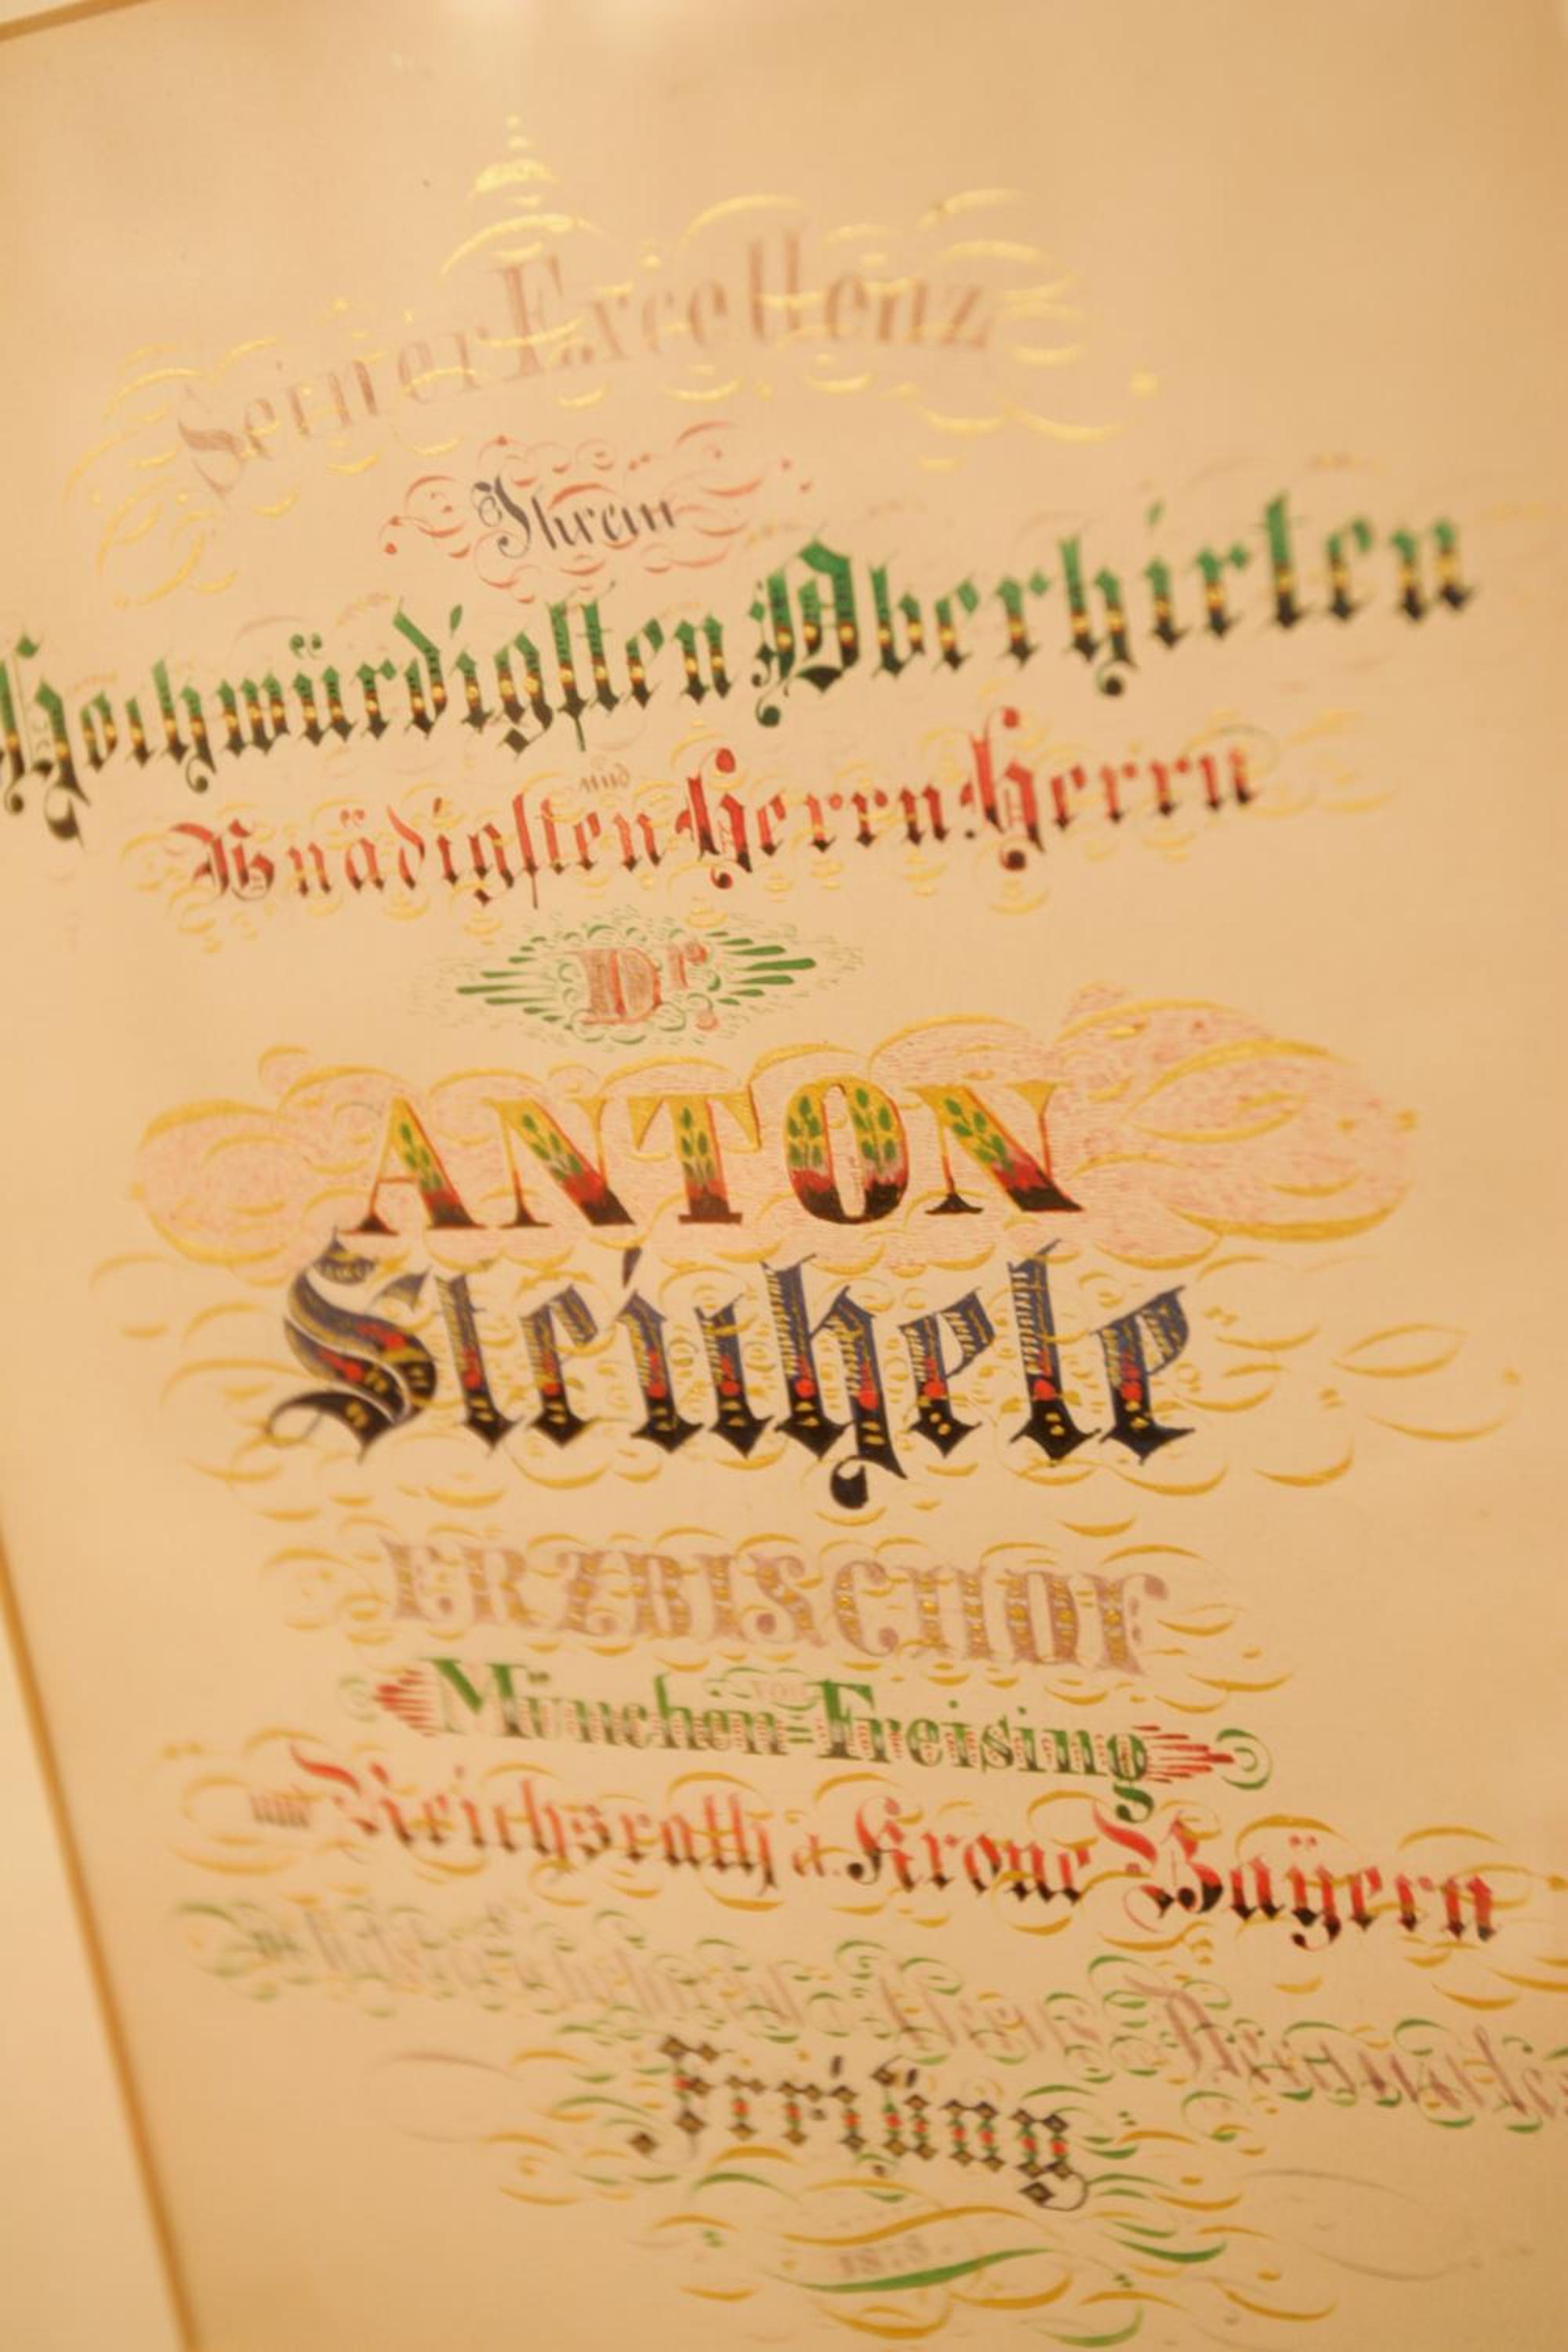 Seiner Excellenz
Ihrem
Hochwürdigsten Oberhirten
und
Gnädigsten Herrn Herrn
Dr.
ANTON
Steichele
ERZBISCHOF
von
München=Freising
und Reichsrath d. Krone Bayern